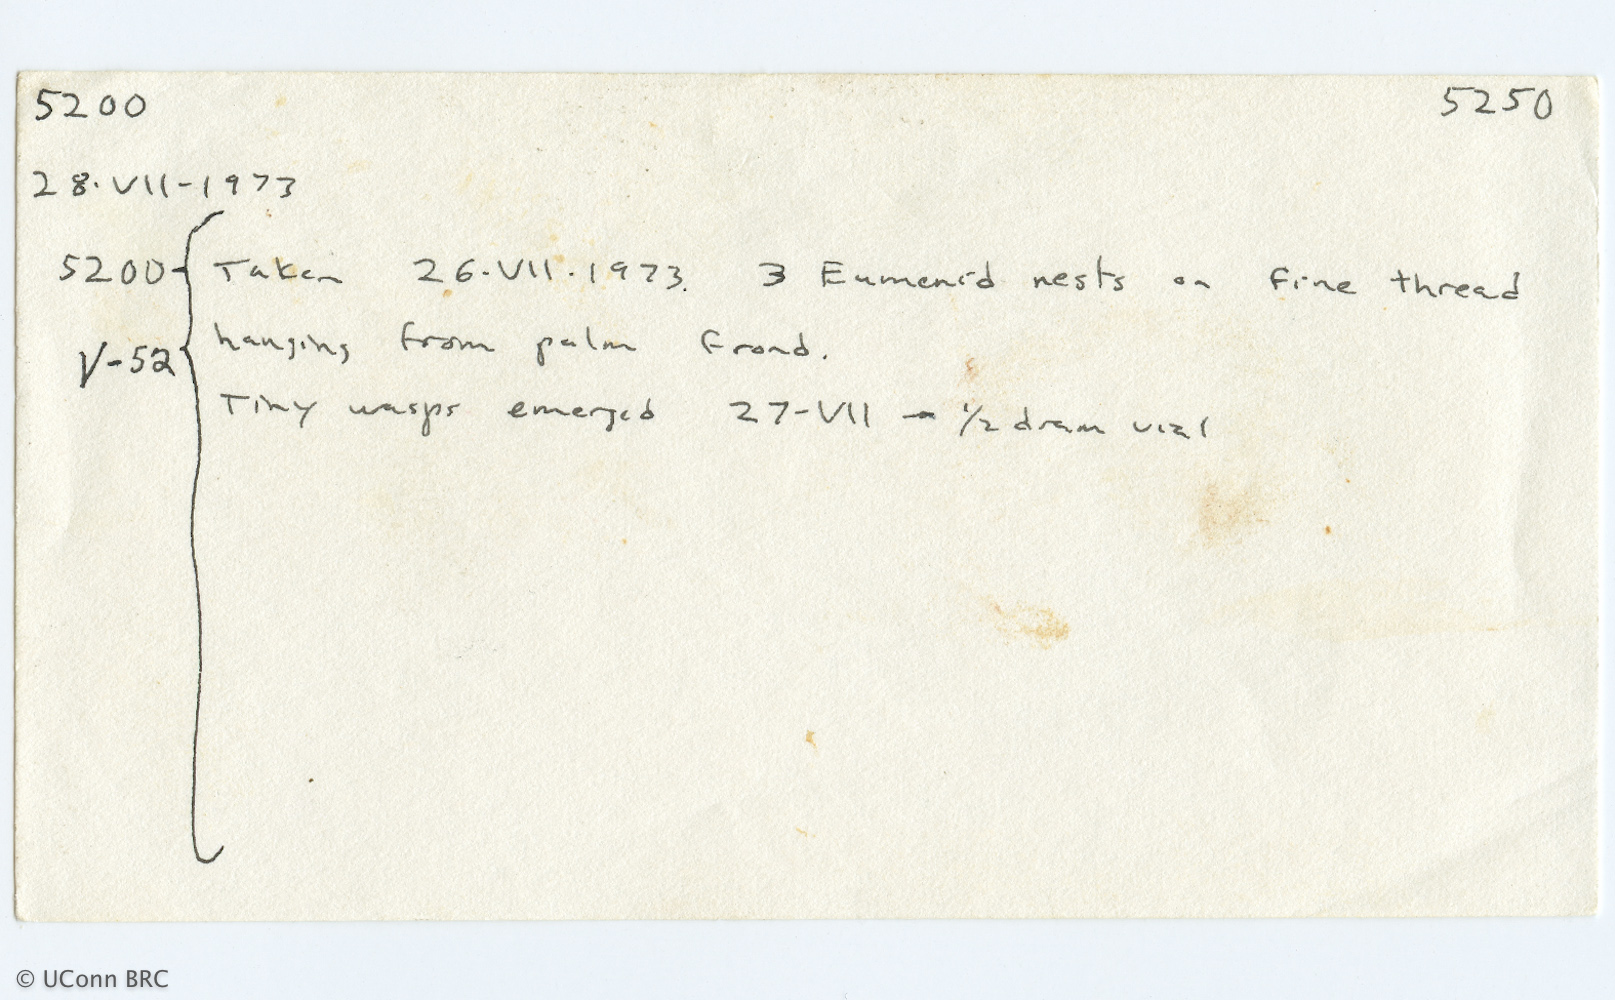 5200 5250
28.VII-1973
5200 Taken 26.VII.1973. 3 Eumenid nests on fine thread
hanging from palm frond.
V-52
Tiny wasps emerged 27-VII → 1/2 dram vial
© UConn BRC